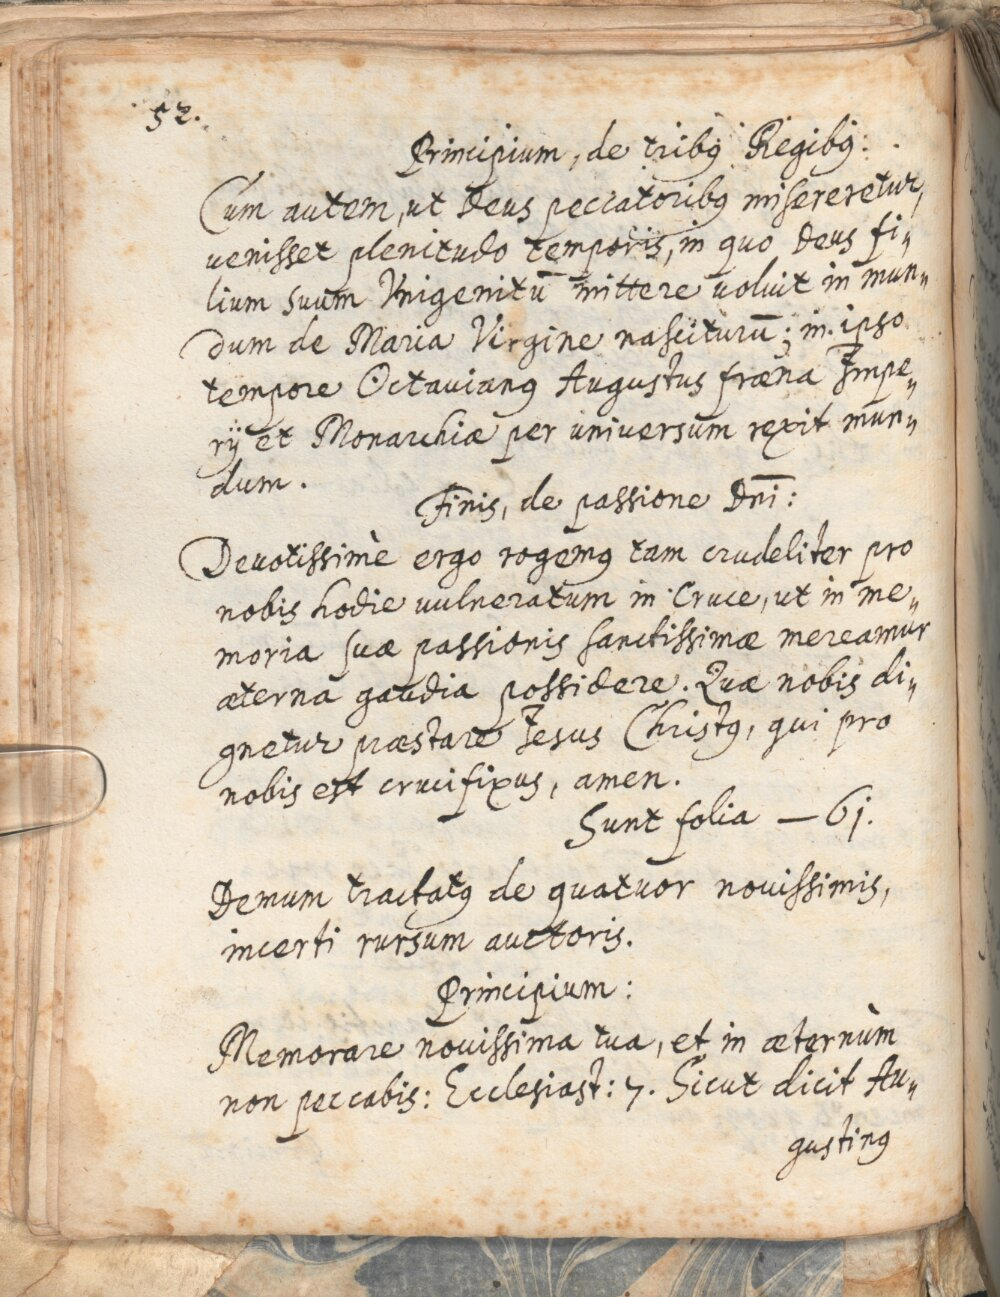 52.
Principium, de tribꝰ Regibꝰ:
Cum autem, ut Deus peccatoribꝰ misereretur,
uenisset plenitudo temporis, in quo Deus fi„
lium suum Vnigenitū mittere uoluit in mun„
dum de Maria Virgine nasciturū; in ipso
tempore Octauianꝰ Augustus fræna Impe„
rij et Monarchiæ per uniuersum rexit mun„
dum.
Finis, de passione Dn̄i:
Deuotissimè ergo rogemꝰ tam crudeliter pro
nobis hodie uulneratum in Cruce, ut in me„
moria suæ passionis sanctissimæ mereamur
æterna gaudia possidere. Quæ nobis di„
gnetur præstare Jesus Christꝰ, qui pro
nobis est crucifixus, amen.
Sunt folia — 61.
Demum tractatꝰ de quatuor nouissimis,
incerti rursum auctoris.
Principium:
Memorare nouissima tua, et in æternùm
non peccabis: Ecclesiast: 7. Sicut dicit Au„
gustinꝰ